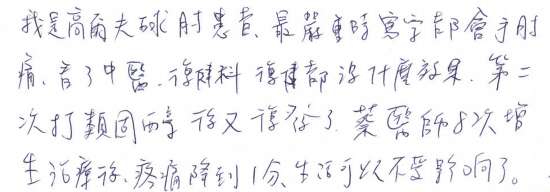 我是高爾夫球肘患者、最嚴重時寫字都會手肘
痛、看了中醫、復健科 復健都沒什麼效果. 第二
次打類固醇 後又復發了. 蔡醫師8次增
生治療後、疼痛降到1分、生活可以不受影响了。